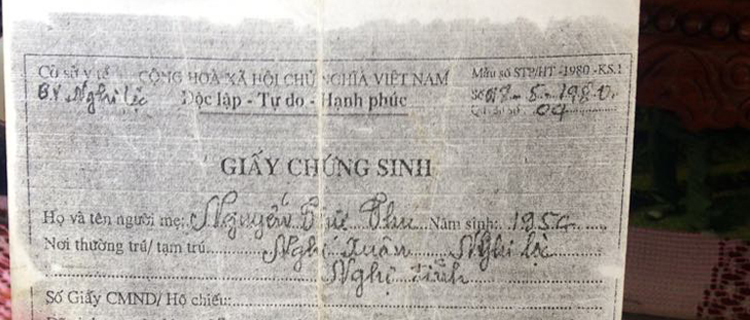 Cơ sở y tế CỘNG HOÀ XÃ HỘI CHỦ NGHĨA VIỆT NAM Mẫu số STP/HT -1980 -KS.1
BV Nghi Lộc Độc lập - Tự do - Hạnh phúc Số 018-5-1980
Quyển số 04
GIẤY CHỨNG SINH
Họ và tên người mẹ: Nguyễn Thị Thu Năm sinh: 195
Nơi thường trú/ tạm trú Nghi Xuân Nghi Lộc
Nghệ Tĩnh
Số Giấy CMND/ Hộ chiếu: